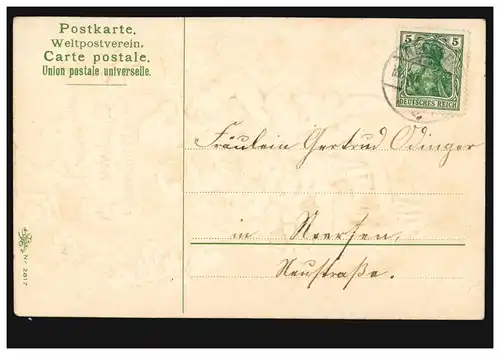 Postkarte.
Weltpostverein.
Carte postale.
Union postale universelle.
5 5
DEUTSCHES REICH
Fräulein Gertrud Odinger
in Neersen,
Neustraße.
Nr. 2817